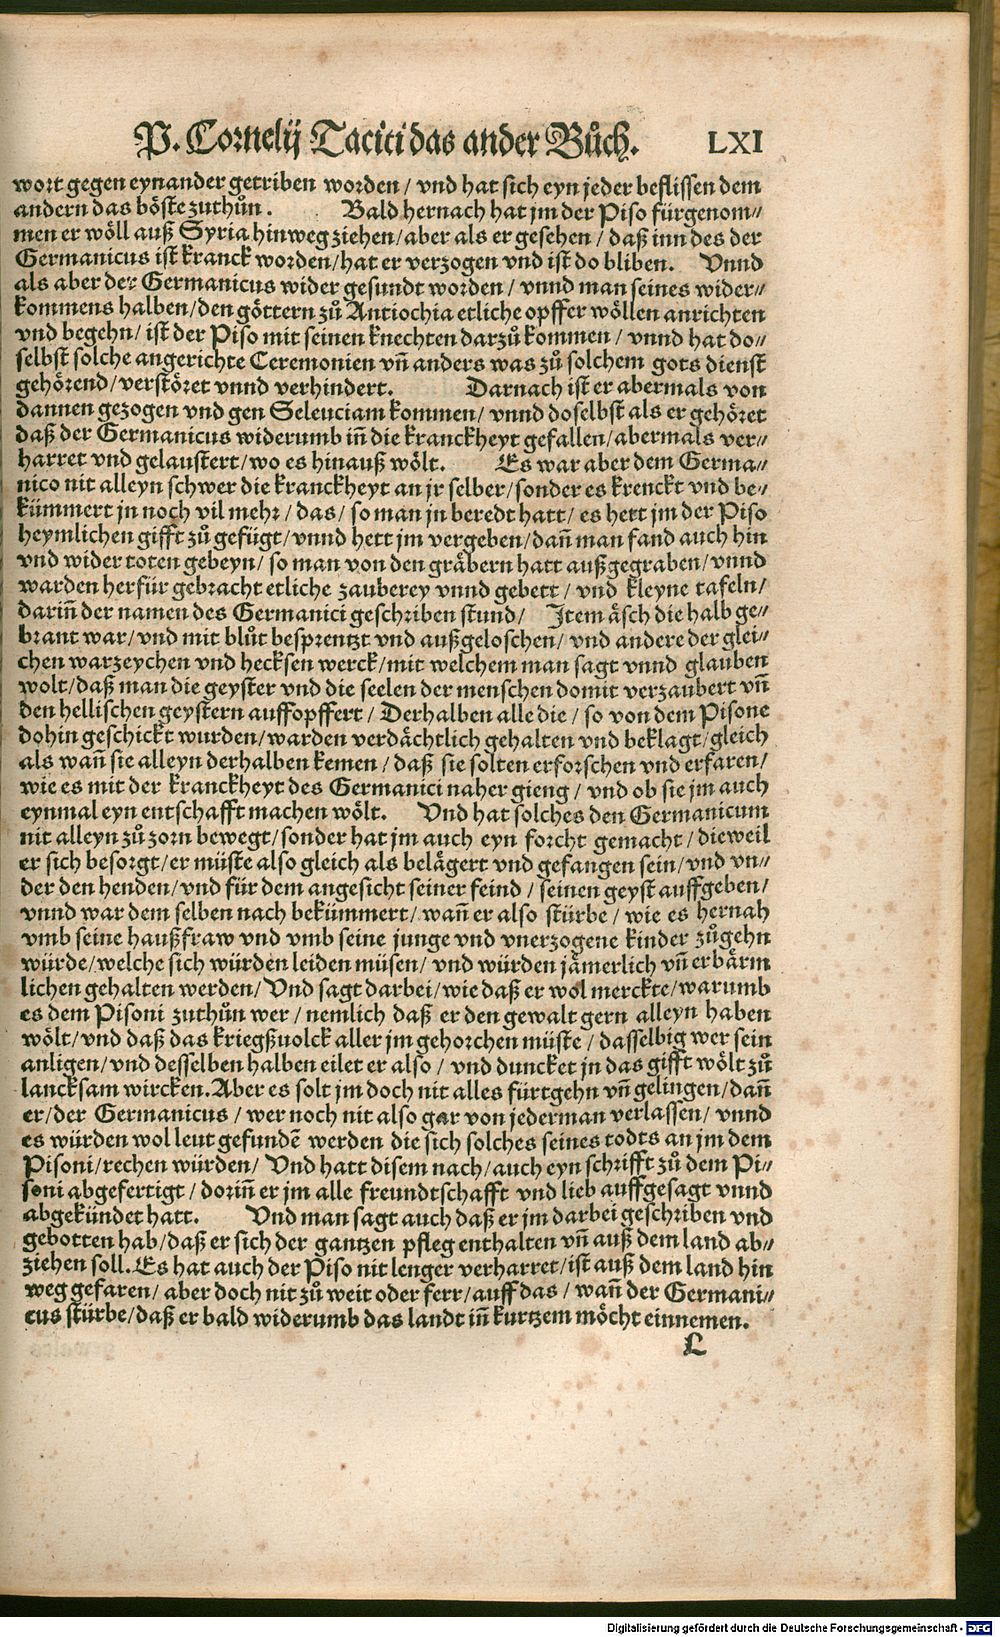 P. Cornelij Taciti das ander Bůch. LXI
wort gegen eynander getriben worden / vnd hat sich eyn jeder beflissen dem
andern das böste zuthůn. Bald hernach hat jm der Piso fürgenom⸗
men er wöll auß Syria hinweg ziehen / aber als er gesehen / daß inn des der
Germanicus ist kranck worden / hat er verzogen vnd ist do bliben. Vnnd
als aber der Germanicus wider gesundt worden / vnnd man seines wider⸗
kommens halben / den göttern zů Antiochia etliche opffer wöllen anrichten
vnd begehn / ist der Piso mit seinen knechten darzů kommen / vnnd hat do⸗
selbst solche angerichte Ceremonien vñ anders was zů solchem gots dienst
gehörend / verstöret vnnd verhindert. Darnach ist er abermals von
dannen gezogen vnd gen Seleuciam kommen / vnnd doselbst als er gehöret
daß der Germanicus widerumb iñ die kranckheyt gefallen / abermals ver⸗
harret vnd gelaustert / wo es hinauß wölt. Es war aber dem Germa⸗
nico nit alleyn schwer die kranckheyt an jr selber / sonder es krenckt vnd be⸗
kümmert jn noch vil mehr / das / so man jn beredt hatt / es hett jm der Piso
heymlichen gifft zů gefügt / vnnd hett jm vergeben / dañ man fand auch hin
vnd wider toten gebeyn / so man von den gräbern hatt außgegraben / vnnd
warden herfür gebracht etliche zauberey vnnd gebett / vnd kleyne tafeln /
dariñ der namen des Germanici geschriben stund / Item äsch die halb ge⸗
brant war / vnd mit blůt besprentzt vnd außgeloschen / vnd andere der glei⸗
chen warzeychen vnd hecksen werck / mit welchem man sagt vnnd glauben
wolt / daß man die geyster vnd die seelen der menschen domit verzaubert vñ
den hellischen geystern auffopffert / Derhalben alle die / so von dem Pisone
dohin geschickt wurden / warden verdächtlich gehalten vnd beklagt / gleich
als wañ sie alleyn derhalben kemen / daß sie solten erforschen vnd erfaren /
wie es mit der kranckheyt des Germanici naher gieng / vnd ob sie jm auch
eynmal eyn entschafft machen wölt. Vnd hat solches den Germanicum
nit alleyn zů zorn bewegt / sonder hat jm auch eyn forcht gemacht / dieweil
er sich besorgt / er müste also gleich als belägert vnd gefangen sein / vnd vn⸗
der den henden / vnd für dem angesicht seiner feind / seinen geyst auffgeben /
vnnd war dem selben nach bekümmert / wañ er also stürbe / wie es hernah
vmb seine haußfraw vnd vmb seine junge vnd vnerzogene kinder zůgehn
würde / welche sich würden leiden müsen / vnd würden jämerlich vñ erbärm
lichen gehalten werden / Vnd sagt darbei / wie daß er wol merckte / warumb
es dem Pisoni zuthůn wer / nemlich daß er den gewalt gern alleyn haben
wölt / vnd daß das kriegßuolck aller jm gehorchen müste / dasselbig wer sein
anligen / vnd desselben halben eilet er also / vnd duncket jn das gifft wölt zů
lancksam wircken. Aber es solt jm doch nit alles fürtgehn vñ gelingen / dañ
er / der Germanicus / wer noch nit also gar von jederman verlassen / vnnd
es würden wol leut gefundẽ werden die sich solches seines todts an jm dem
Pisoni / rechen würden / Vnd hatt disem nach / auch eyn schrifft zů dem Pi⸗
soni abgefertigt / doriñ er jm alle freundtschafft vnd lieb auffgesagt vnnd
abgekündet hatt. Vnd man sagt auch daß er jm darbei geschriben vnd
gebotten hab / daß er sich der gantzen pfleg enthalten vñ auß dem land ab⸗
ziehen soll. Es hat auch der Piso nit lenger verharret / ist auß dem land hin
weg gefaren / aber doch nit zů weit oder ferr / auff das / wañ der Germani⸗
cus stürbe / daß er bald widerumb das landt iñ kurtzem möcht einnemen.
L
Digitalisierung gefördert durch die Deutsche Forschungsgemeinschaft - DFG